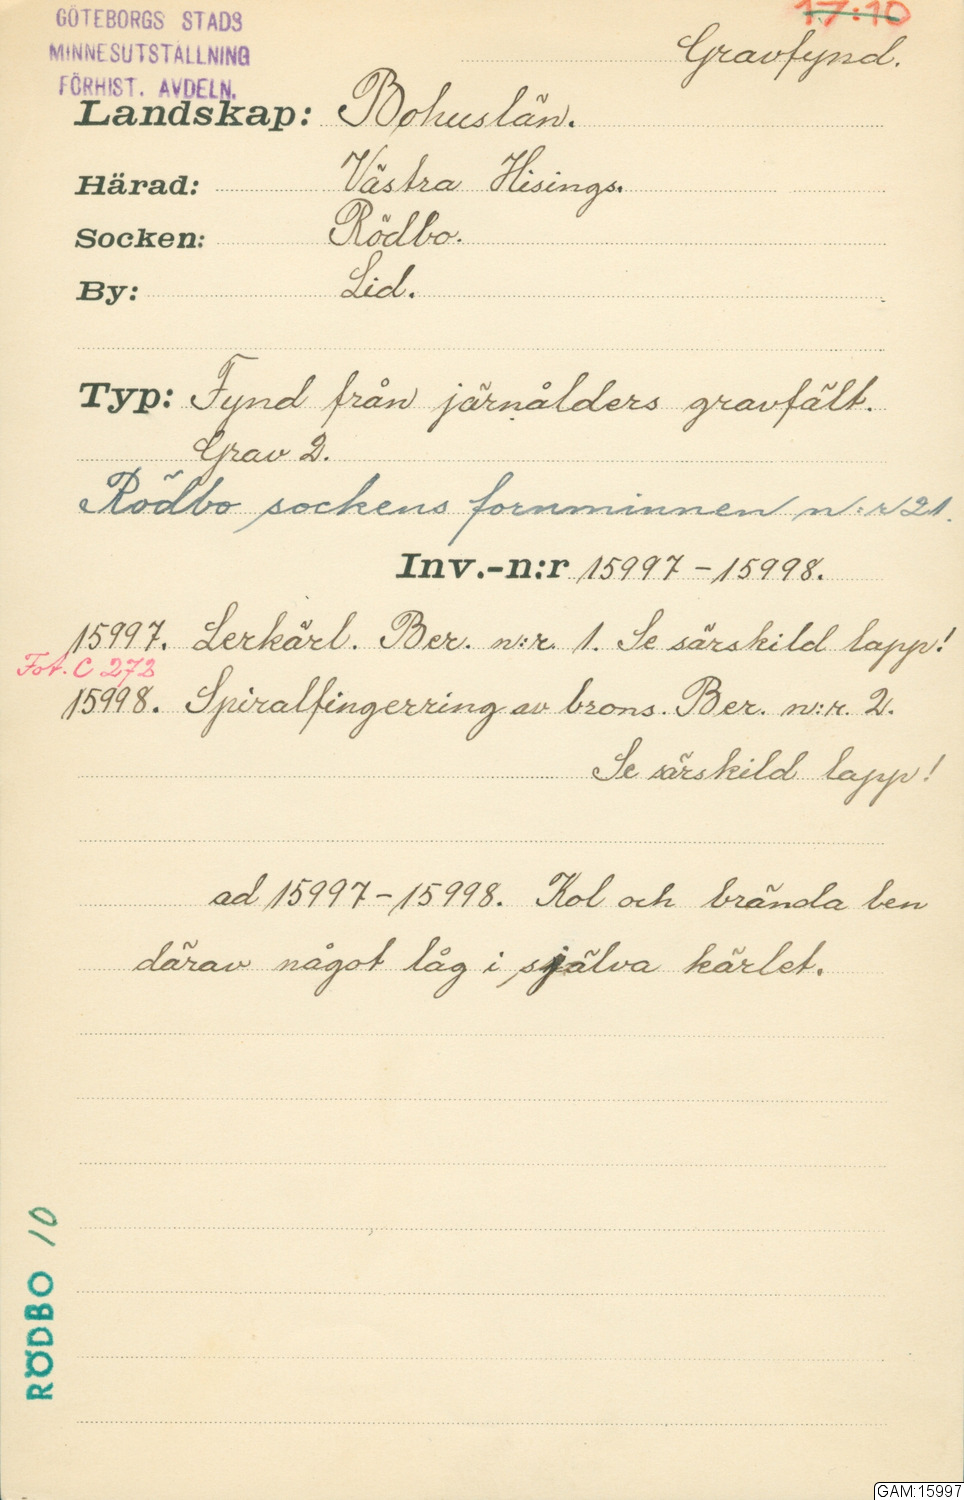 GÖTEBORGS STADS
MINNESUTSTÄLLNING
FÖRHIST. AVDELN.
17:10
Gravfynd.
Landskap: Bohuslän.
Härad: Västra Hisings.
Socken: Rödbo.
By: Lid.
Typ: Fynd från järnålders gravfält.
Grav 2.
Rödbo sockens fornminnen n:r 21.
Inv.-n:r 15997-15998.
15997. Lerkärl. Ber. n:r. 1. Se särskild lapp!
Fot. C 272
15998. Spiralfingerring av brons. Ber. n:r. 2.
Se särskild lapp!
ad 15997-15998. Kol och brända ben
därav något låg i själva kärlet.
RÖDBO 10
GAM:15997